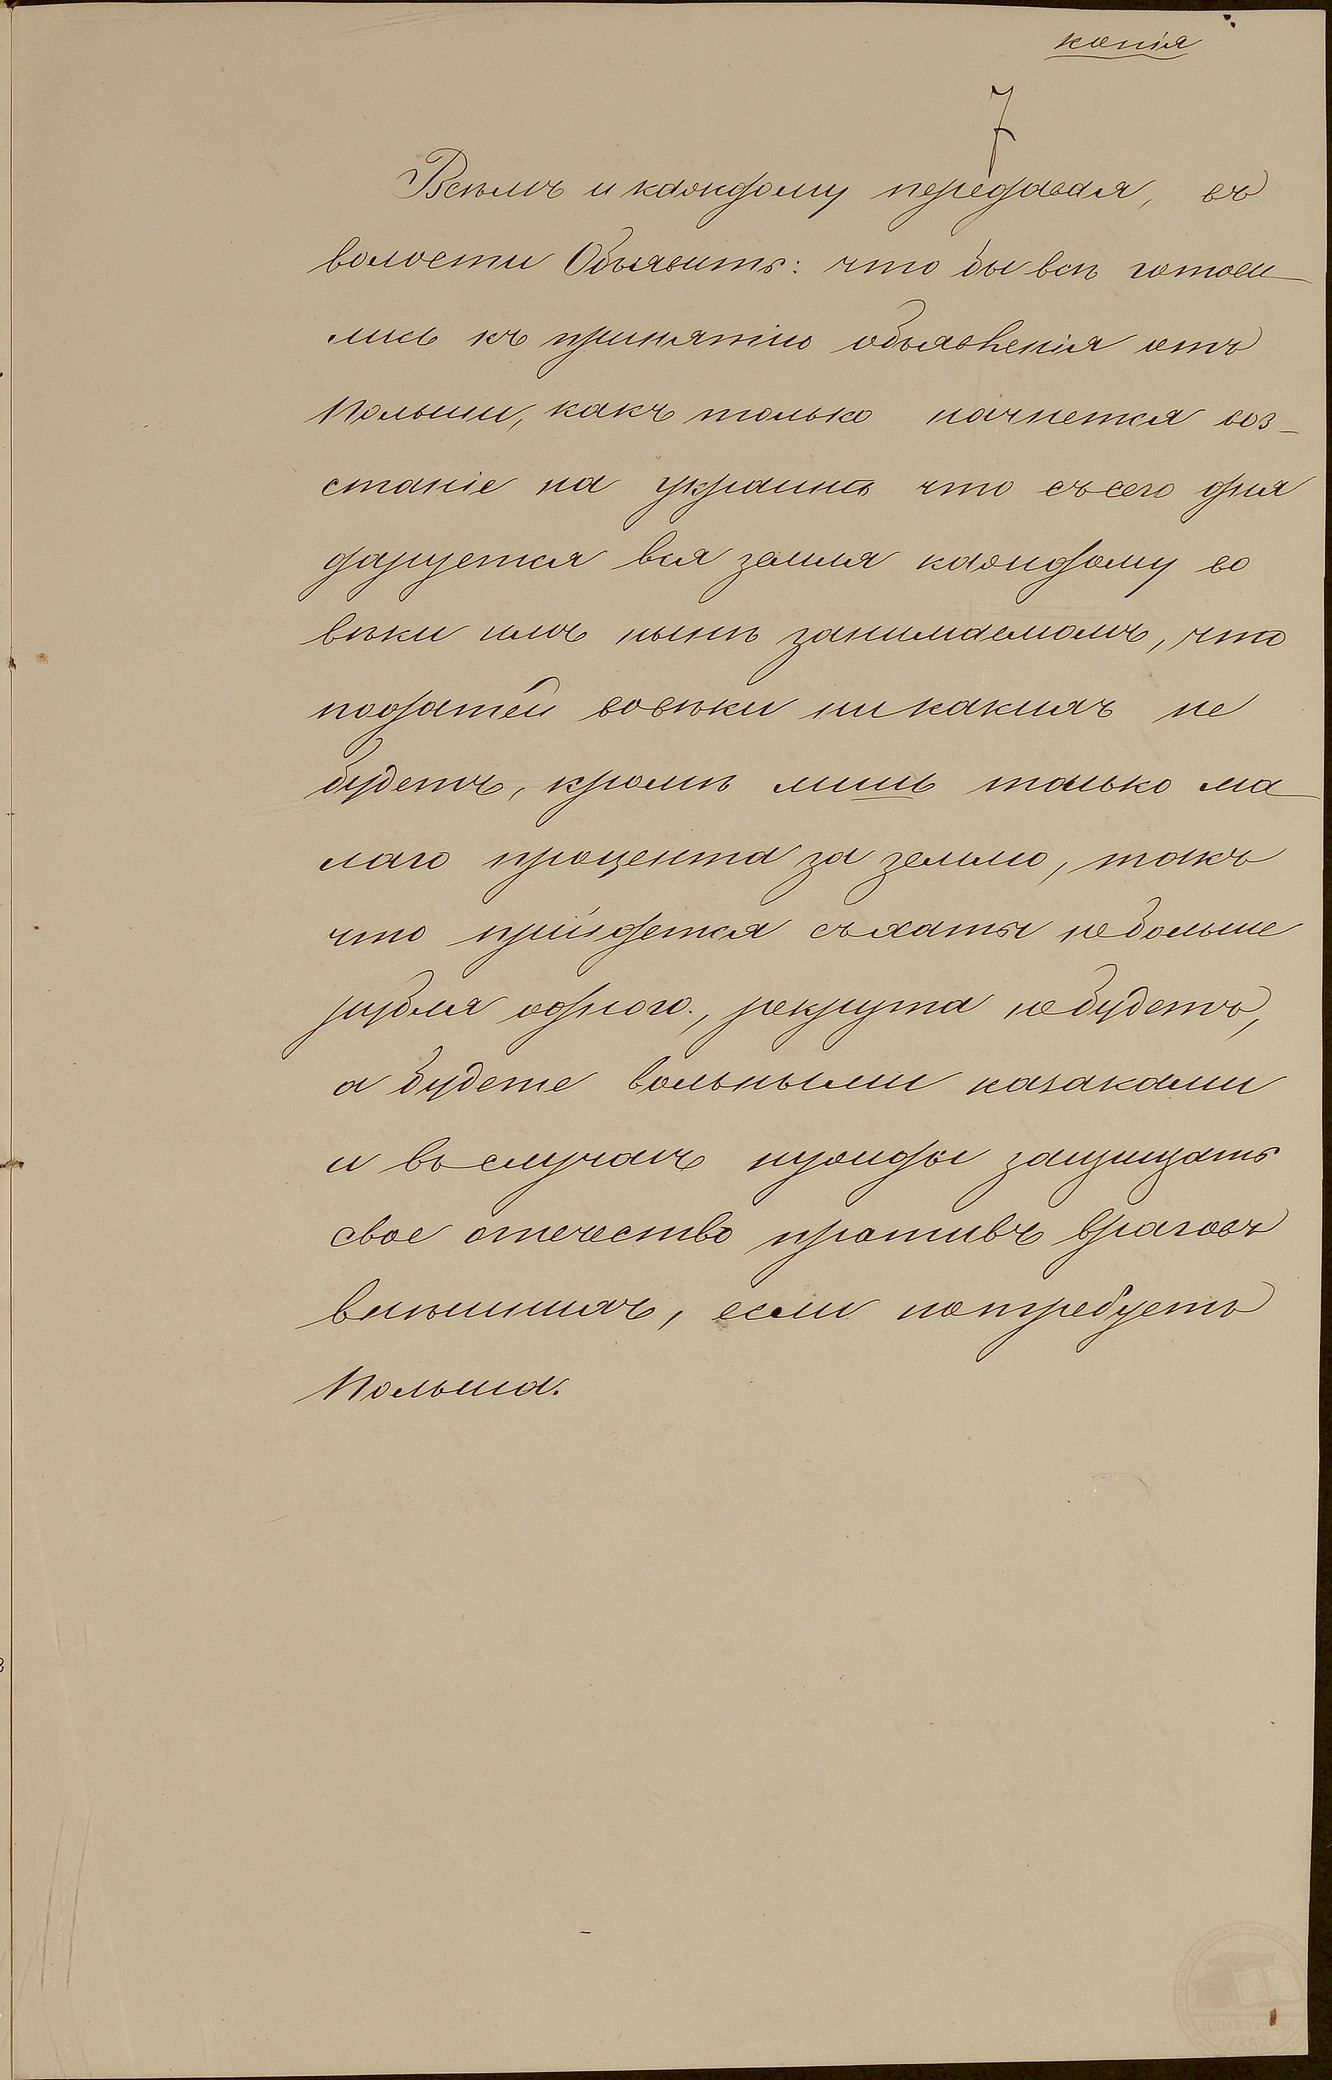 копія
7
Всѣмъ и каждому передавая, въ
волости Объявить: что бы всѣ готови
лись къ принятію объявленія отъ
Польши, какъ только начнется воз-
станіе на украинѣ что съ сего дня
дарується вся земля каждому во
вѣки имъ нынѣ занимаемомъ, что
податей вовѣки ни какихъ не
будетъ, кромѣ лишь только ма
лаго процента за землю, такъ
что прійдется съ хаты небольше
рубля одного., рекрута небудетъ,
а будете вольными казаками
и въ случаѣ нужды защищать
свое отечество противъ враговъ
внѣшнихъ, если потребуетъ
Польша.